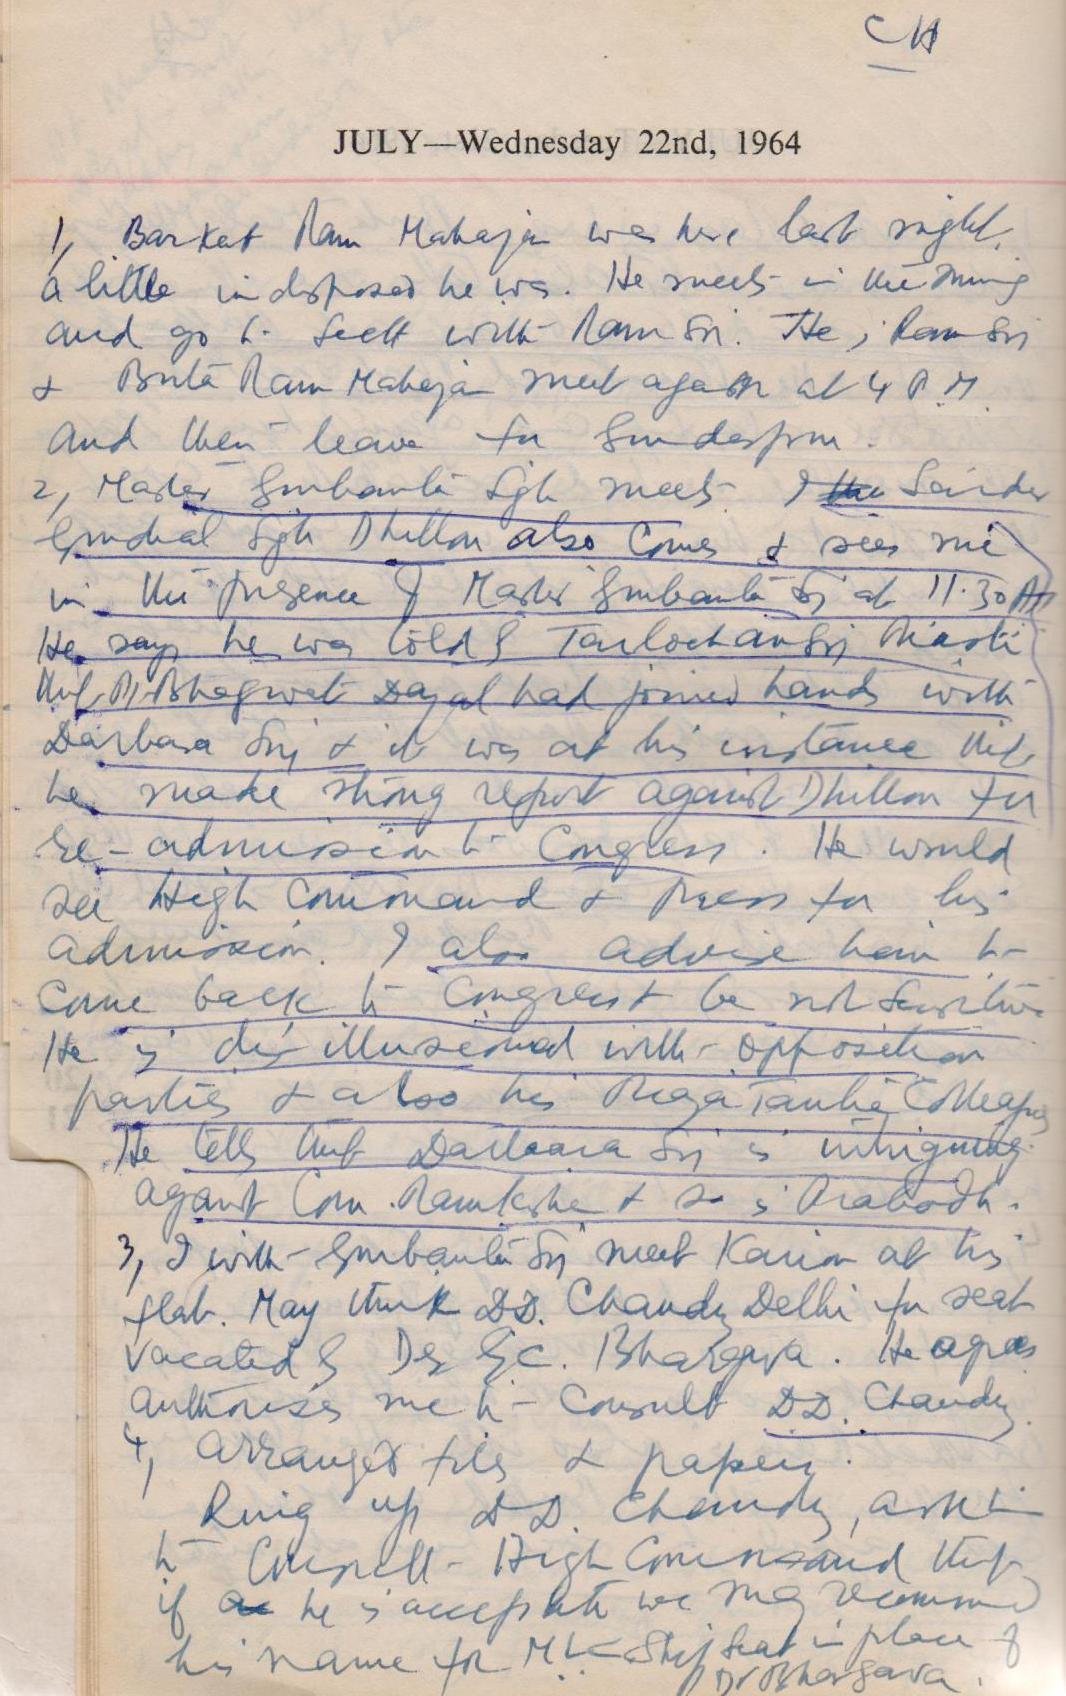 CH
JULY—Wednesday 22nd, 1964
1, Barkat Ram Mahajan was here last night,
a little indisposed he was. He meets in the morning
and go to with Ram Sri. He, Ram Sri
& Ram Mahajan meet again at 4 P.M.
and then leave for
2, Master Gurbanta Sgh meets. Sardar
Gurdial Sgh Dhillon also comes & sees me
in the presence of Master Gurbanta Sgh at 11.30 AM
He says he was told by Tarlochan Sgh Riasti
that Pt. Bhagwat Dayal had joined hands with
Darbara Sgh & it was at his instance that
he made strong report against Dhillon for
re-admission to Congress. He would
see High Command & Press for his
admission. I also advise him to
come back to Congress & be not sensitive
He is disillusioned with opposition
parties & also his Colleagues
He tells that Darbara Sgh is intriguing
against Com. Ramkishan & so is Prabodh.
3, I with Gurbanta Sgh meet Kairon at his
flat. May think D.D. Chandr Delhi for seat
vacated by Dr G.C. Bhargava. He agrees
authorises me to consult D.D. Chandr
4, arranged files & papers.
Ring up D.D. Chandr, ask him
to consult High Command that
if he is acceptable we may recommend
his name for M.L.C. ship seat in place of
Dr Bhargava.